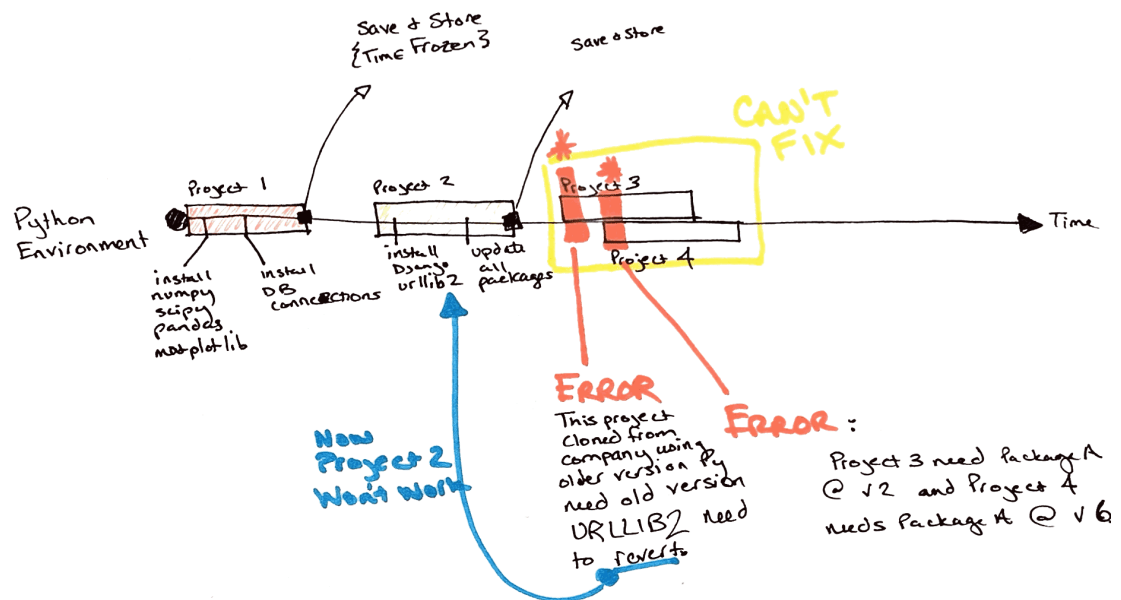 Save & Store
{Time Frozen}
Save & Store
CAN'T
FIX
Project 1
Project 2
Project 3
Python
Environment
Time
Project 4
install
numpy
scipy
pandas
matplotlib
install
DB
connections
install
Django
urllib2
update
all
packages
ERROR
This project
cloned from
company using
older version Py
need old version
URLLIB2 need
to revert
ERROR:
Project 3 need Package A
@ v2 and Project 4
needs Package A @ v6
Now
Project 2
Won't Work